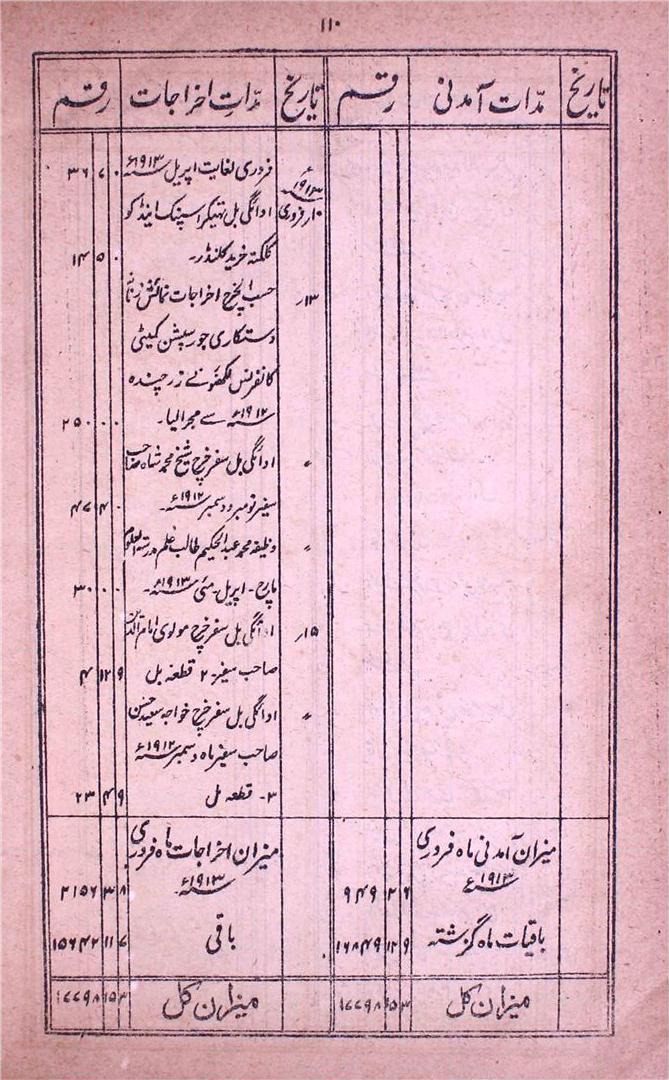 ۱۱۰
تاریخ مدّات آمدنی رقم تاریخ مدّاتِ اخراجات رقم
فروری لغایت اپریل ۱۹۱۳ء ۳۶ ۷ ۰
۱۹۱۳ء
۱۰ر فروری ادائگی بل تھیکر اسپنک اینڈ کو
کلکتہ خرید کلنڈر۔ ۱۴ ۵ ۰
۱۳ر حسب الخرچ اخراجات نمائش زنانہ
دستکاری جو رسپشن کمیٹی
کانفرنس لکھنؤ نے زر چندہ
۱۹۱۲ء سے مجرا لیا۔ ۲۵۰ ۰ ۰
〃 ادائگی بل سفر خرچ شیخ محمد شاہ صاحب
سفیر نومبر و دسمبر ۱۹۱۲ء۔ ۴۷ ۴ ۰
〃 وظیفہ محمد عبدالحکیم طالب علم مدرستہ العلوم
مارچ۔ اپریل۔ مئی ۱۹۱۳ء۔ ۳۰ ۰ ۰
۱۵ر ادائگی بل سفر خرچ مولوی امام الدین
صاحب سفیر۔ ۲ قطعہ بل ۴ ۱۲ ۹
〃 ادائگی بل سفر خرچ خواجہ سعید حسن
صاحب سفیر ماہ دسمبر ۱۹۱۲ء
۳۔ قطعہ بل ۲۳ ۴ ۹
میزان آمدنی ماہ فروری
۱۹۱۳ء ۹۴۹ ۲ ۶
میزان اخراجات ماہ فروری
۱۹۱۳ء۔ ۲۱۵۶ ۳ ۸
باقیات ماہ گزشتہ ۱۶۸۴۹ ۱۲ ۹ باقی ۱۵۶۴۲ ۱۱ ۷
میزان کل ۱۷۷۹۸ ۱۵ ۳ میزان کل ۱۷۷۹۸ ۱۵ ۳